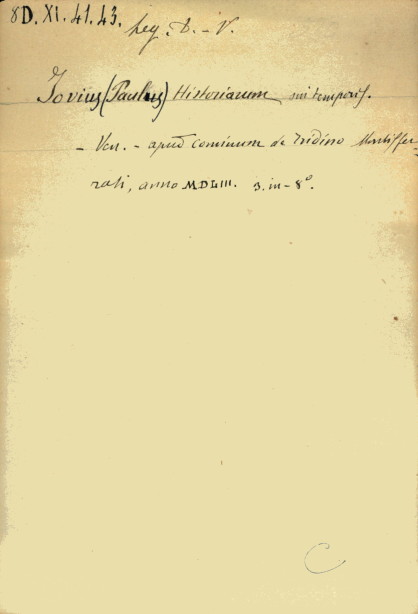 8D. XI. 41.43.
leg. D. - V.
Jovius (Paulus) Historiarum sui temporis.
- Ven. - apud cominum de Tridino Montisfer-
rati, anno MDLIII. 3. in - 8°.
C